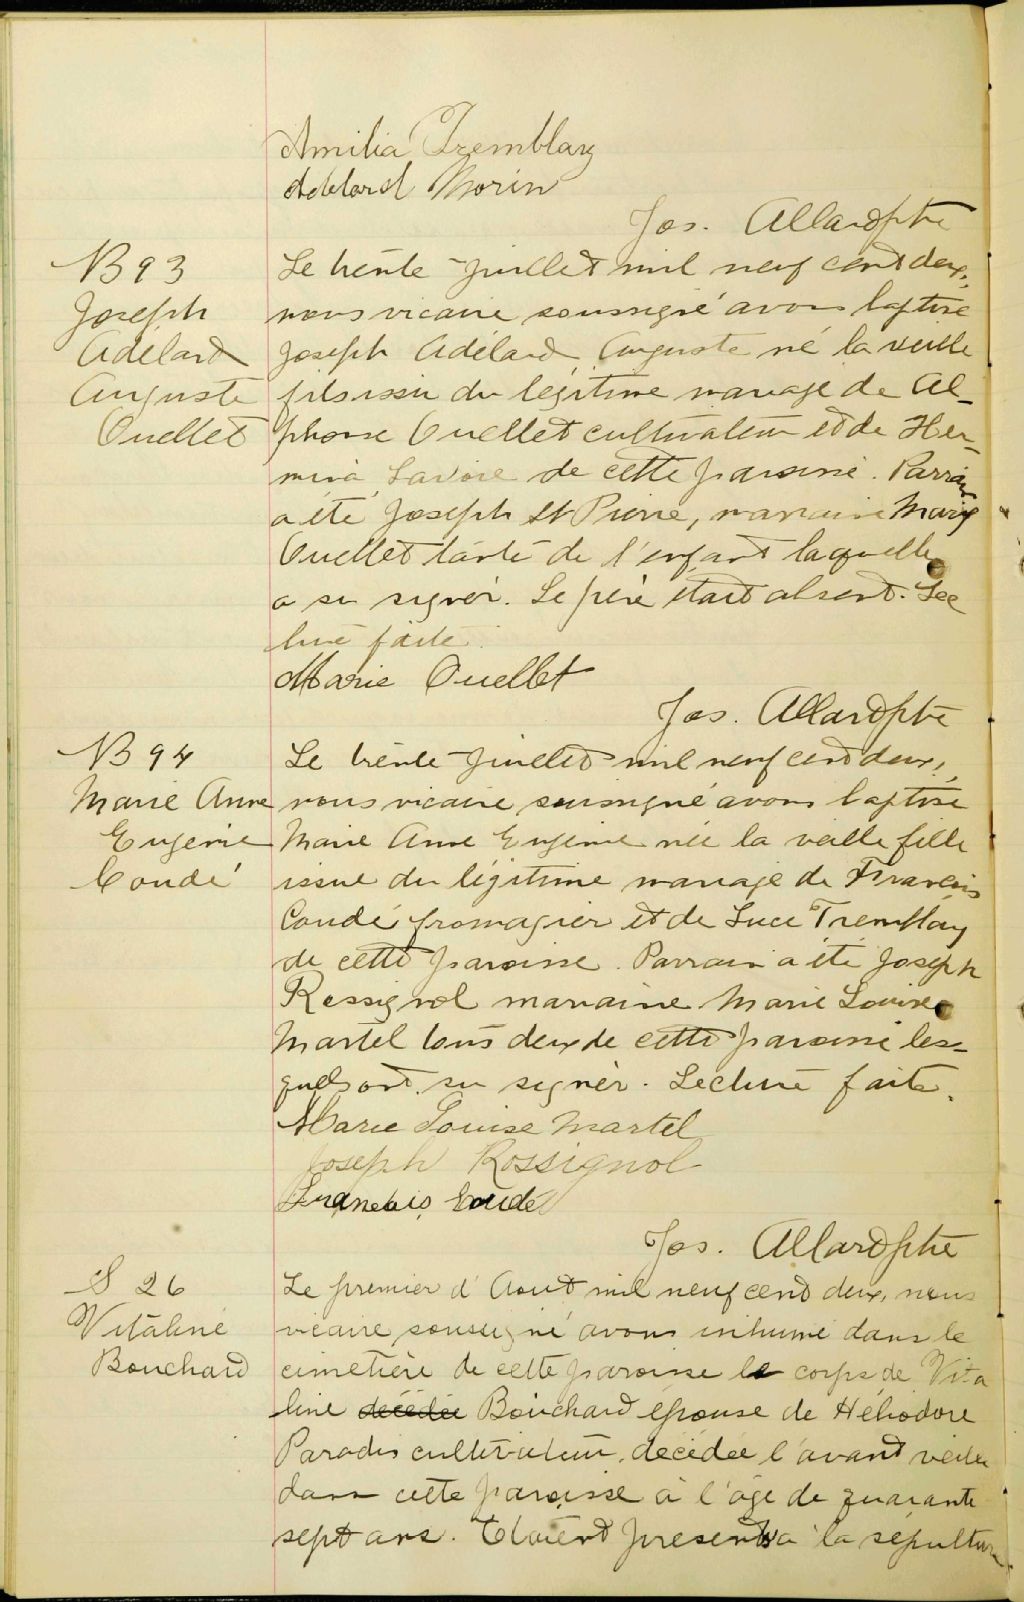 Amilia Tremblay
Adélard Morin
Jos. Allard ptre
B 93
Joseph
Adélard
Auguste
Ouellet
Le trente juillet mil neuf cent deux,
nous vicaire soussigné avons baptisé
Joseph Adélard Auguste né la veille
fils issu du légitime mariage de Al-
phonse Ouellet cultivateur et de Her-
mina Savoie de cette paroisse. Parrain
a été Joseph St Pierre, marraine Marie
Ouellet tante de l'enfant laquelle
a su signer. Le père était absent. Lec
ture faite.
Marie Ouellet
Jos. Allard ptre
B 94
Marie Anne
Eugénie
Coudé
Le trente juillet mil neuf cent deux,
nous vicaire soussigné avons baptisé
Marie Anne Eugénie née la veille fille
issue du légitime mariage de François
Coudé fromagier et de Luce Tremblay
de cette paroisse. Parrain a été Joseph
Rossignol marraine Marie Louise
Martel tous deux de cette paroisse les-
quels ont su signer. Lecture faite.
Marie Louise Martel
Joseph Rossignol
François Coudé
Jos. Allard ptre
S 26
Vitaline
Bouchard
Le premier d'Aout mil neuf cent deux, nous
vicaire soussigné avons inhumé dans le
cimetière de cette paroisse le corps de Vita
line décédée Bouchard épouse de Héliodore
Paradis cultivateur, décédée l'avant veille
dans cette paroisse à l'âge de quarante
sept ans. Etaient présents à la sépulture